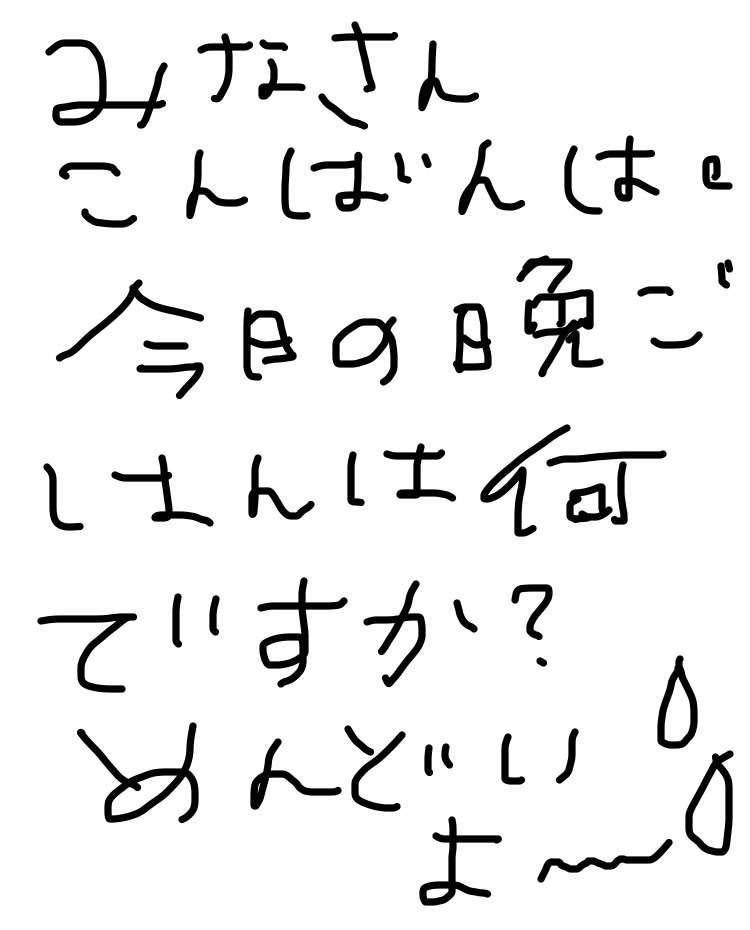 みなさん
こんばんは。
今日の晩ご
はんは何
ですか?
めんどい
よ〜